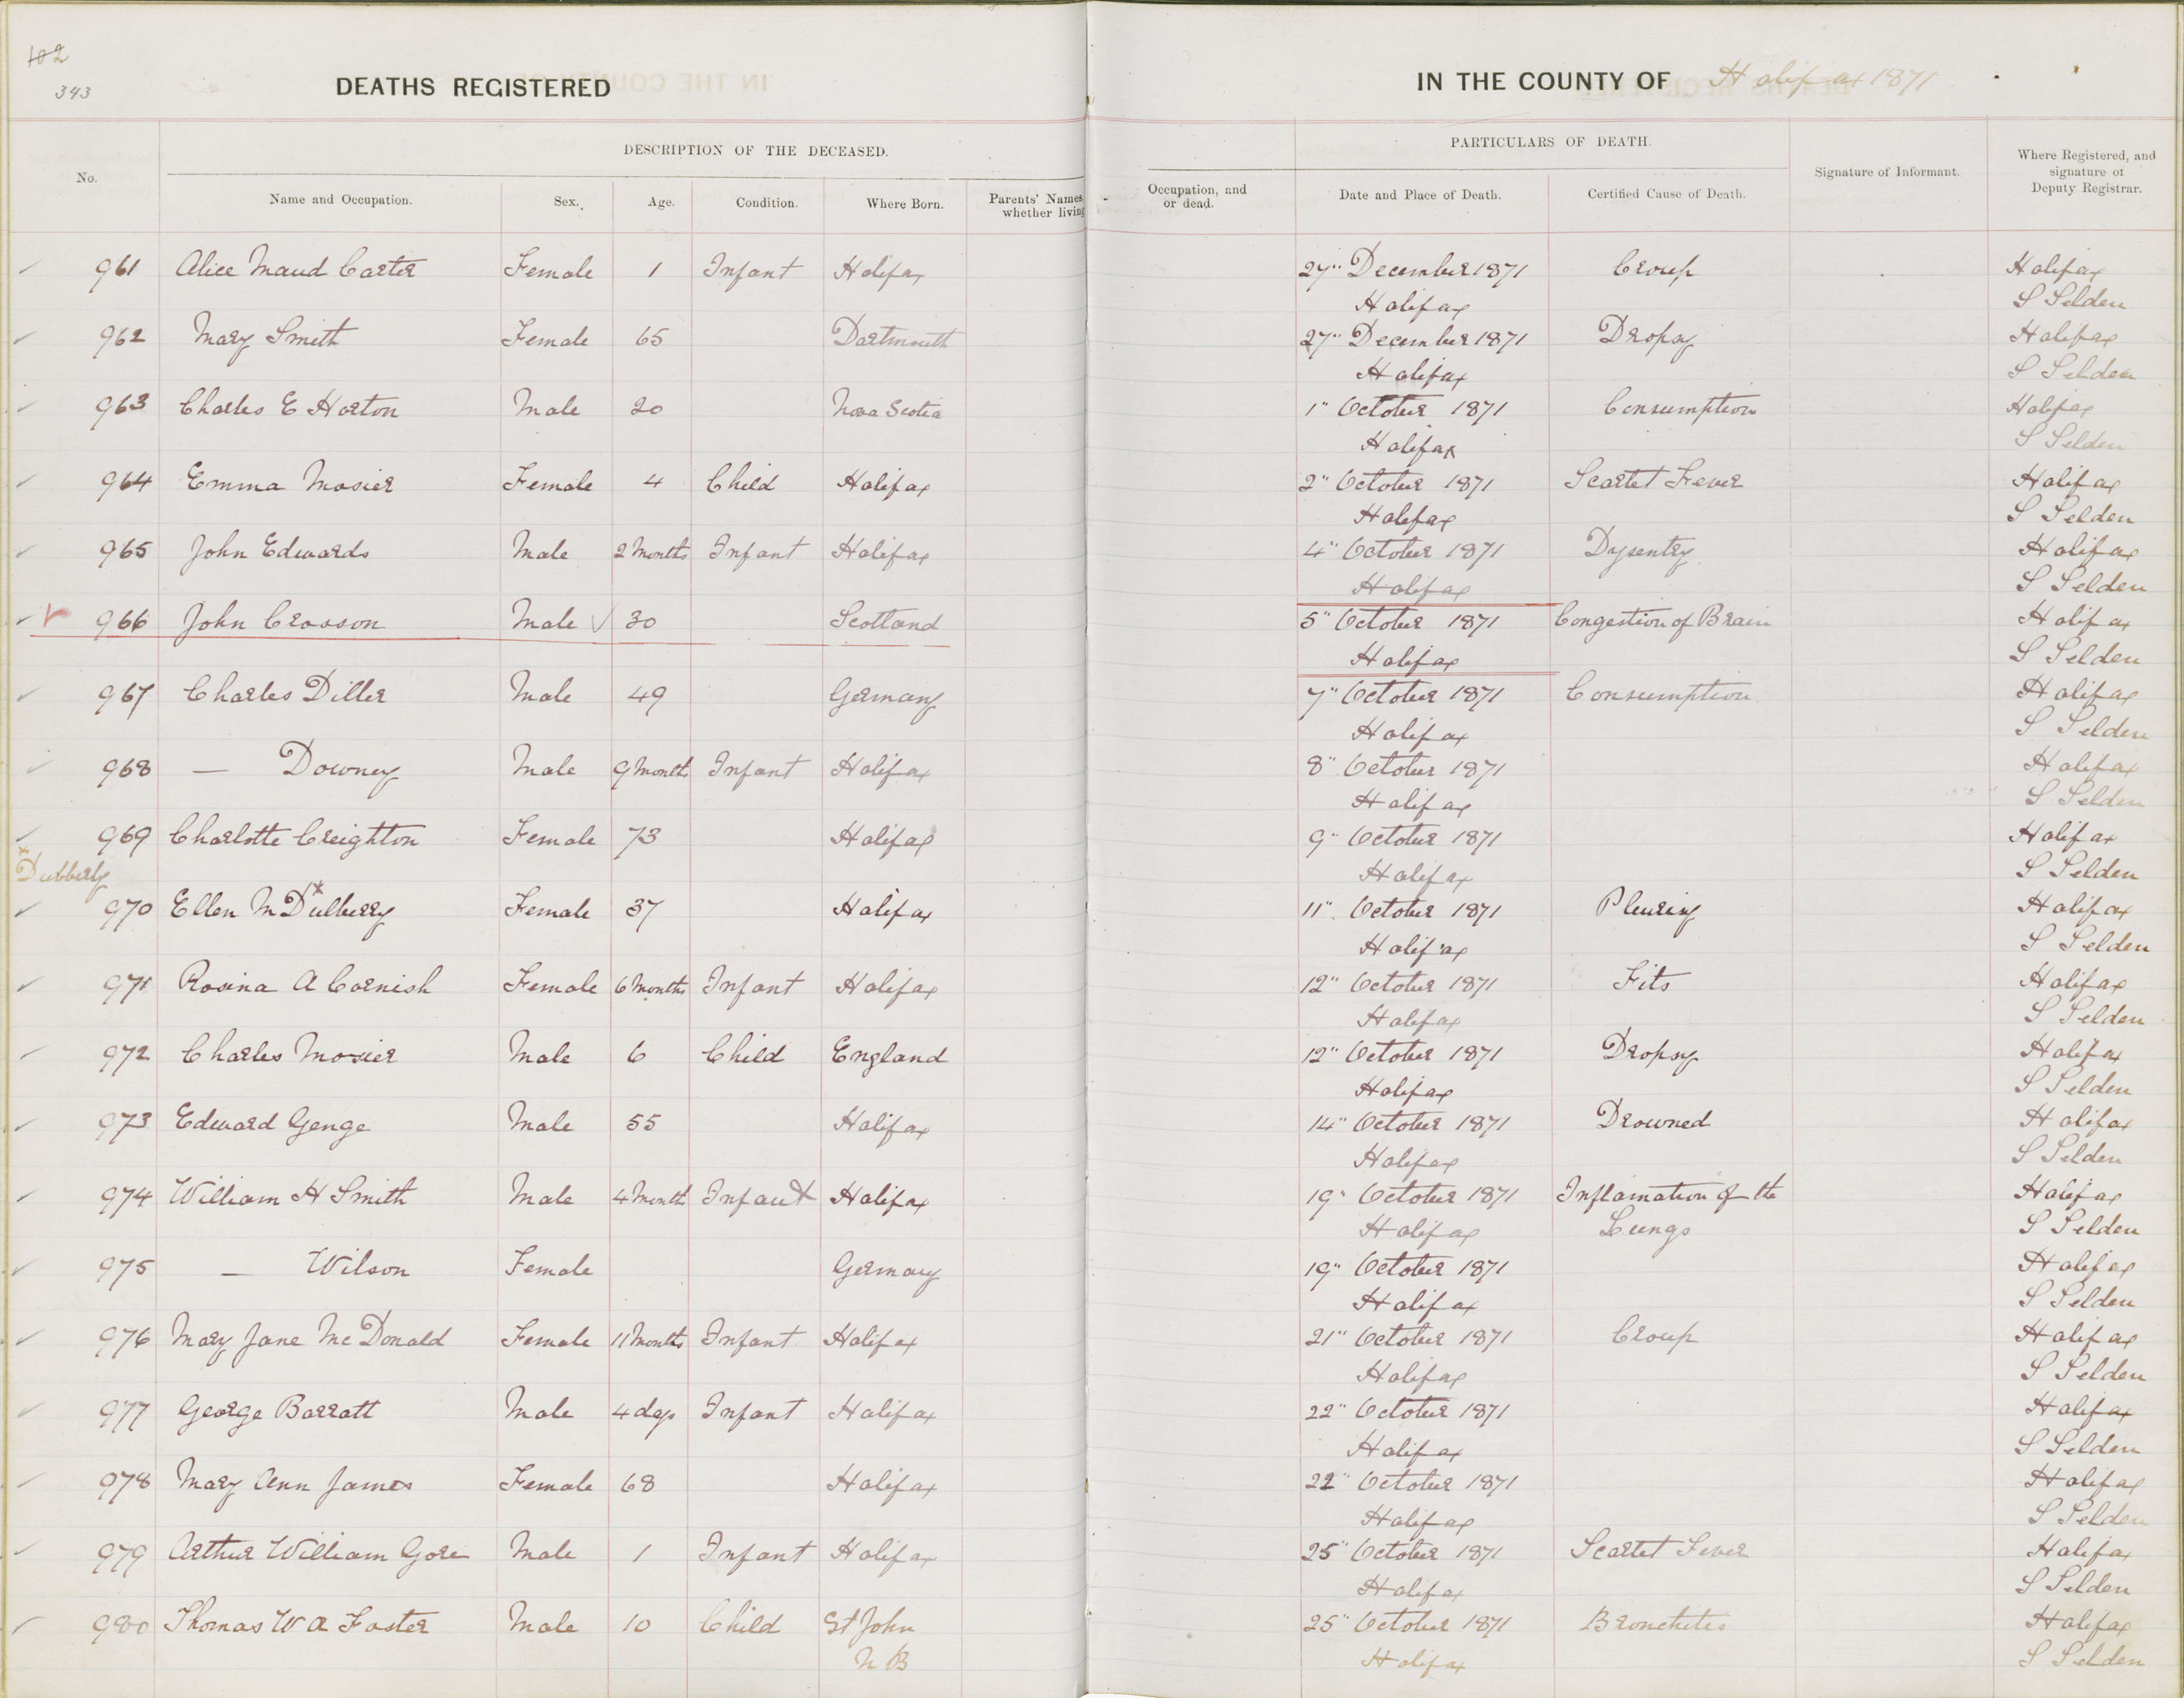 102
343
DEATHS REGISTERED
IN THE COUNTY OF Halifax 1871
DESCRIPTION OF THE DECEASED.
PARTICULARS OF DEATH.
No.
Name and Occupation.
Sex.
Age.
Condition.
Where Born.
Parents' Names,
whether living
Occupation, and
or dead.
Date and Place of Death.
Certified Cause of Death.
Signature of Informant.
Where Registered, and
signature of
Deputy Registrar.
961 Alice Maud Carter Female 1 Infant Halifax 27" December 1871 Croup Halifax
Halifax S Selden
962 Mary Smith Female 65 Dartmouth 27" December 1871 Dropsy Halifax
Halifax S Selden
963 Charles E Horton Male 20 Nova Scotia 1" October 1871 Consumption Halifax
Halifax S Selden
964 Emma Mosier Female 4 Child Halifax 2" October 1871 Scarlet Fever Halifax
Halifax S Selden
965 John Edwards Male 2 Months Infant Halifax 4" October 1871 Dysentry Halifax
Halifax S Selden
966 John Crosson Male 30 Scotland 5" October 1871 Congestion of Brain Halifax
Halifax S Selden
967 Charles Diller Male 49 Germany 7" October 1871 Consumption Halifax
Halifax S Selden
968 — Downey Male 9 Month Infant Halifax 8" October 1871 Halifax
Halifax S Selden
969 Charlotte Creighton Female 73 Halifax 9" October 1871 Halifax
x Dubberly
Halifax S Selden
970 Ellen M Dulberry x Female 37 Halifax 11" October 1871 Pleurisy Halifax
Halifax S Selden
971 Rosina A Cornish Female 6 Months Infant Halifax 12" October 1871 Fits Halifax
Halifax S Selden
972 Charles Mosier Male 6 Child England 12" October 1871 Dropsy Halifax
Halifax S Selden
973 Edward Genge Male 55 Halifax 14" October 1871 Drowned Halifax
Halifax S Selden
974 William H Smith Male 4 Month Infant Halifax 19" October 1871 Inflamation of the Halifax
Halifax Lungs S Selden
975 — Wilson Female Germany 19" October 1871 Halifax
Halifax S Selden
976 Mary Jane McDonald Female 11 Months Infant Halifax 21" October 1871 Croup Halifax
Halifax S Selden
977 George Barratt Male 4 days Infant Halifax 22" October 1871 Halifax
Halifax S Selden
978 Mary Ann James Female 68 Halifax 22" October 1871 Halifax
Halifax S Selden
979 Arthur William Gore Male 1 Infant Halifax 25" October 1871 Scarlet Fever Halifax
Halifax S Selden
980 Thomas W A Foster Male 10 Child St John 25" October 1871 Bronchitis Halifax
N B Halifax S Selden